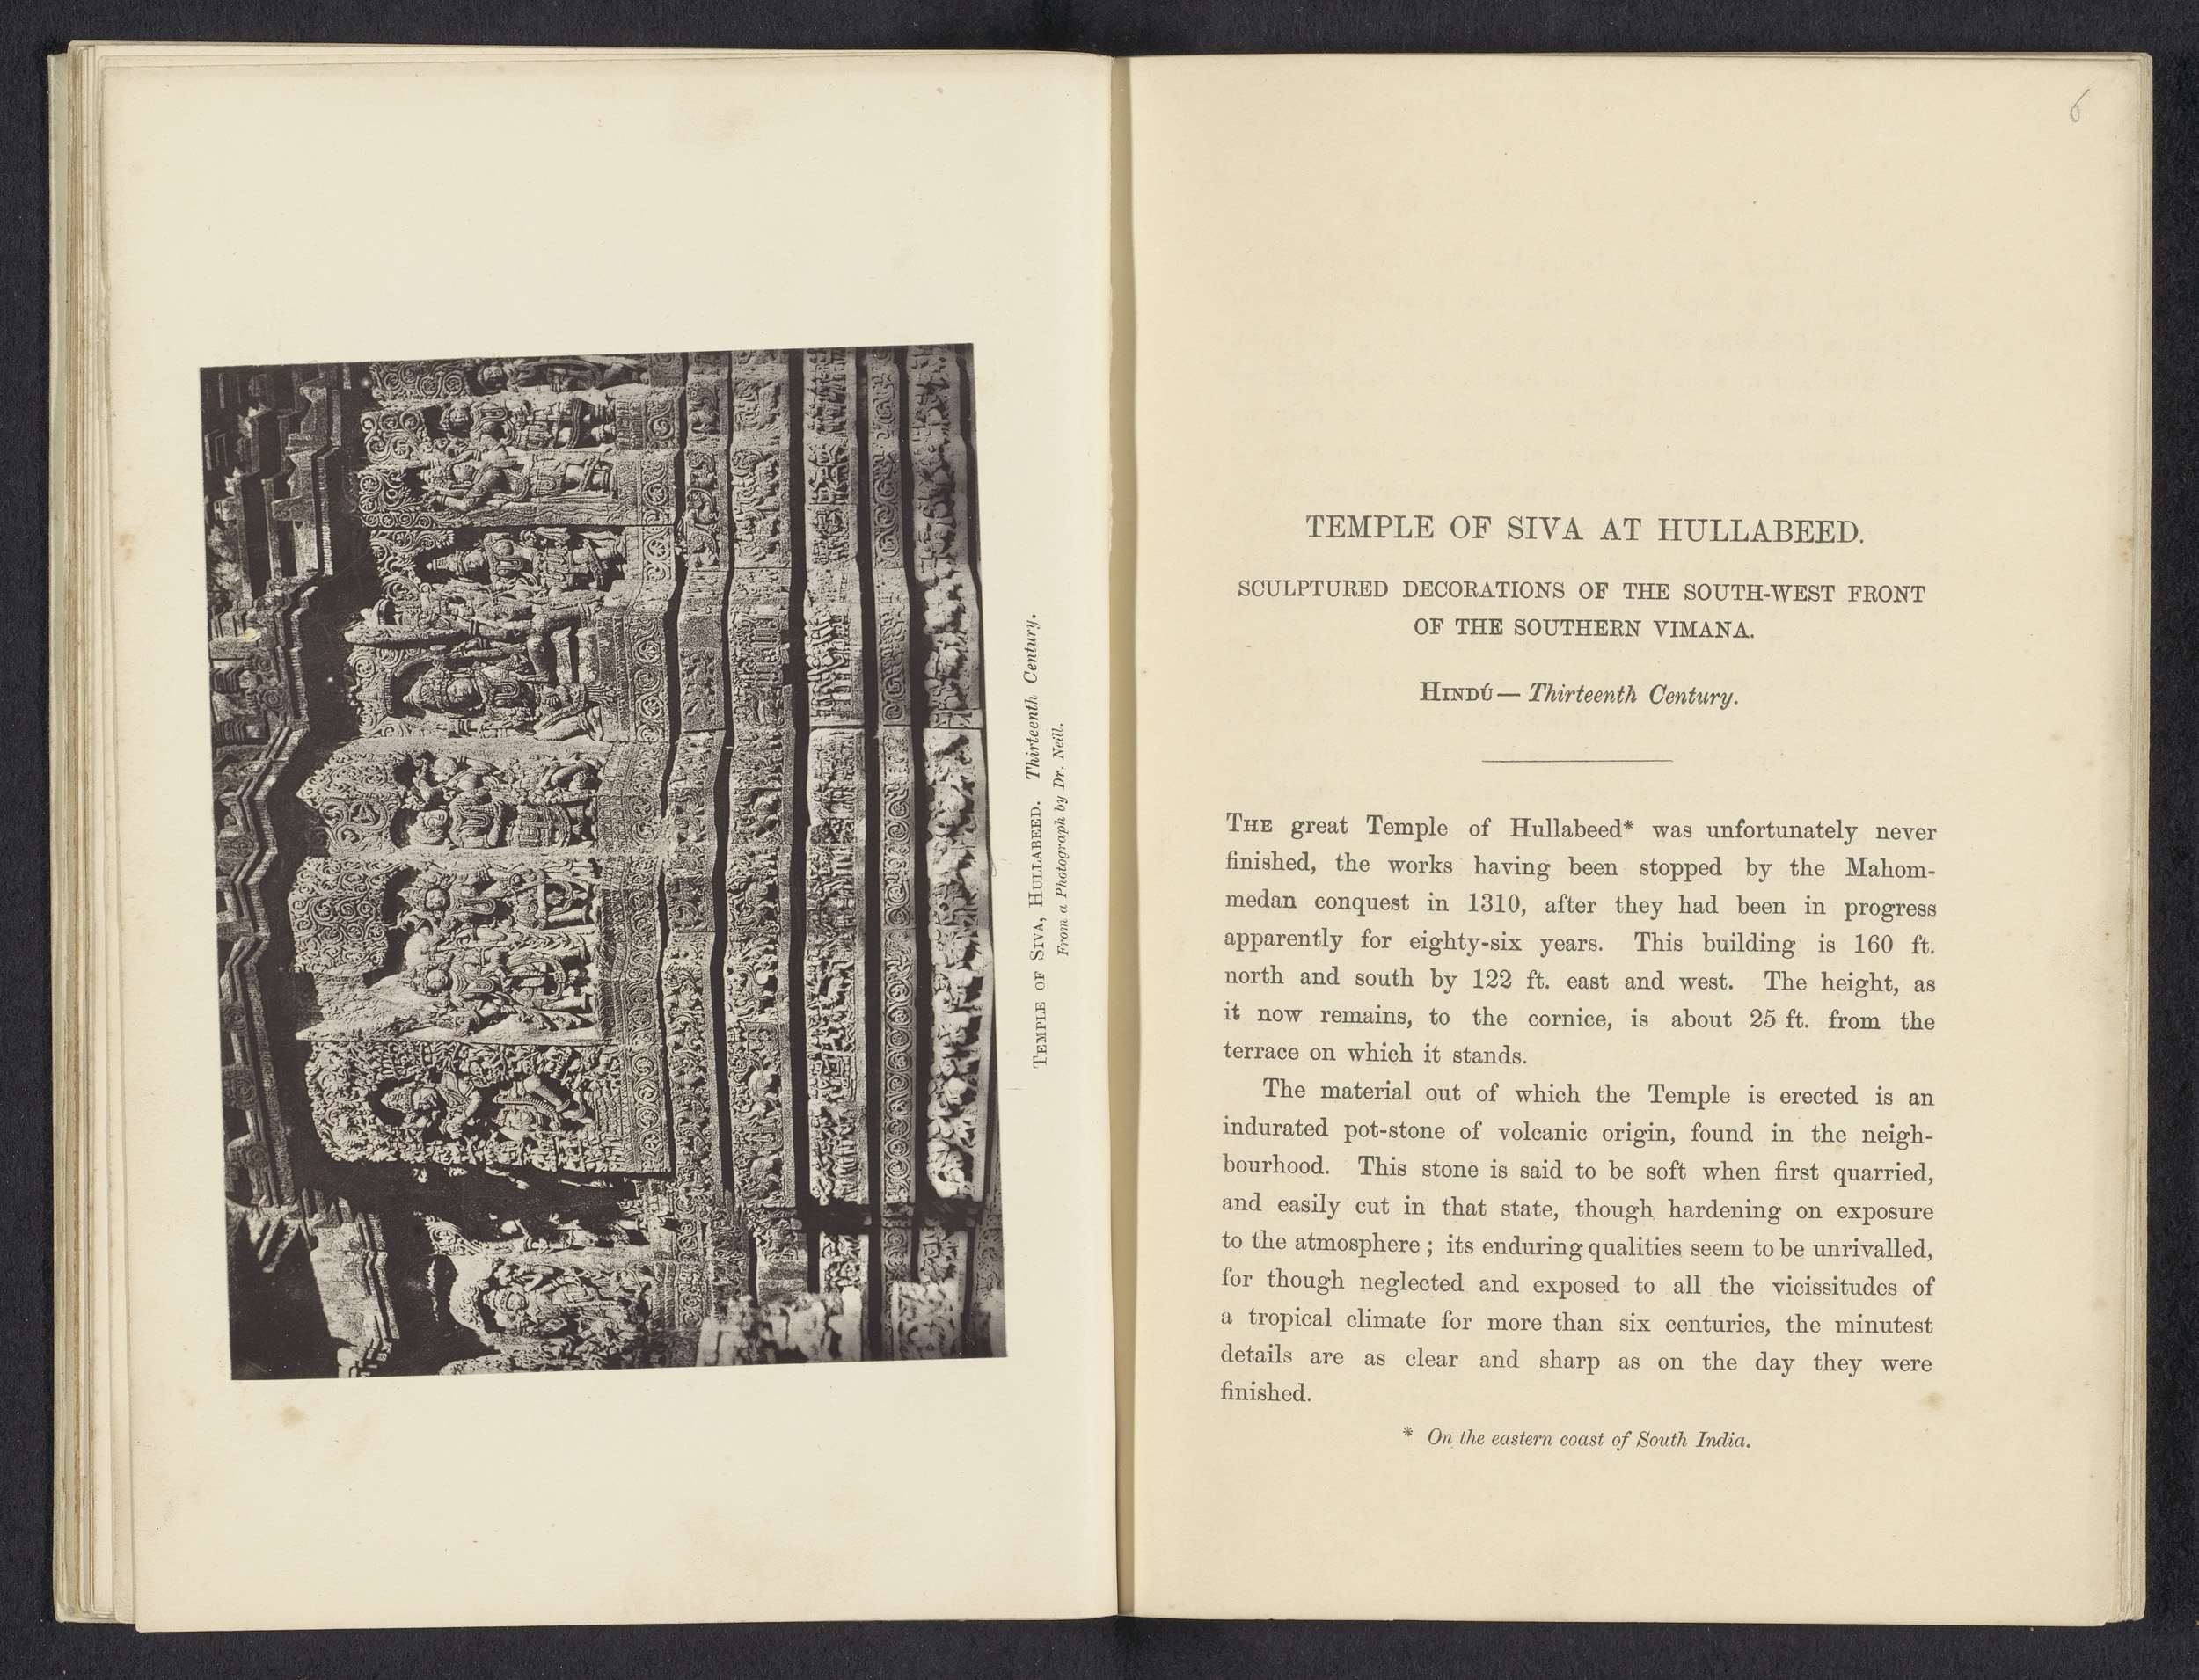 TEMPLE OF SIVA, HULLABEED. Thirteenth Century.
From a Photograph by Dr. Neill.
6
TEMPLE OF SIVA AT HULLABEED.
SCULPTURED DECORATIONS OF THE SOUTH-WEST FRONT
OF THE SOUTHERN VIMANA.
HINDÚ— Thirteenth Century.
THE great Temple of Hullabeed* was unfortunately never
finished, the works having been stopped by the Mahom-
medan conquest in 1310, after they had been in progress
apparently for eighty-six years. This building is 160 ft.
north and south by 122 ft. east and west. The height, as
it now remains, to the cornice, is about 25 ft. from the
terrace on which it stands.
The material out of which the Temple is erected is an
indurated pot-stone of volcanic origin, found in the neigh-
bourhood. This stone is said to be soft when first quarried,
and easily cut in that state, though hardening on exposure
to the atmosphere; its enduring qualities seem to be unrivalled,
for though neglected and exposed to all the vicissitudes of
a tropical climate for more than six centuries, the minutest
details are as clear and sharp as on the day they were
finished.
* On the eastern coast of South India.